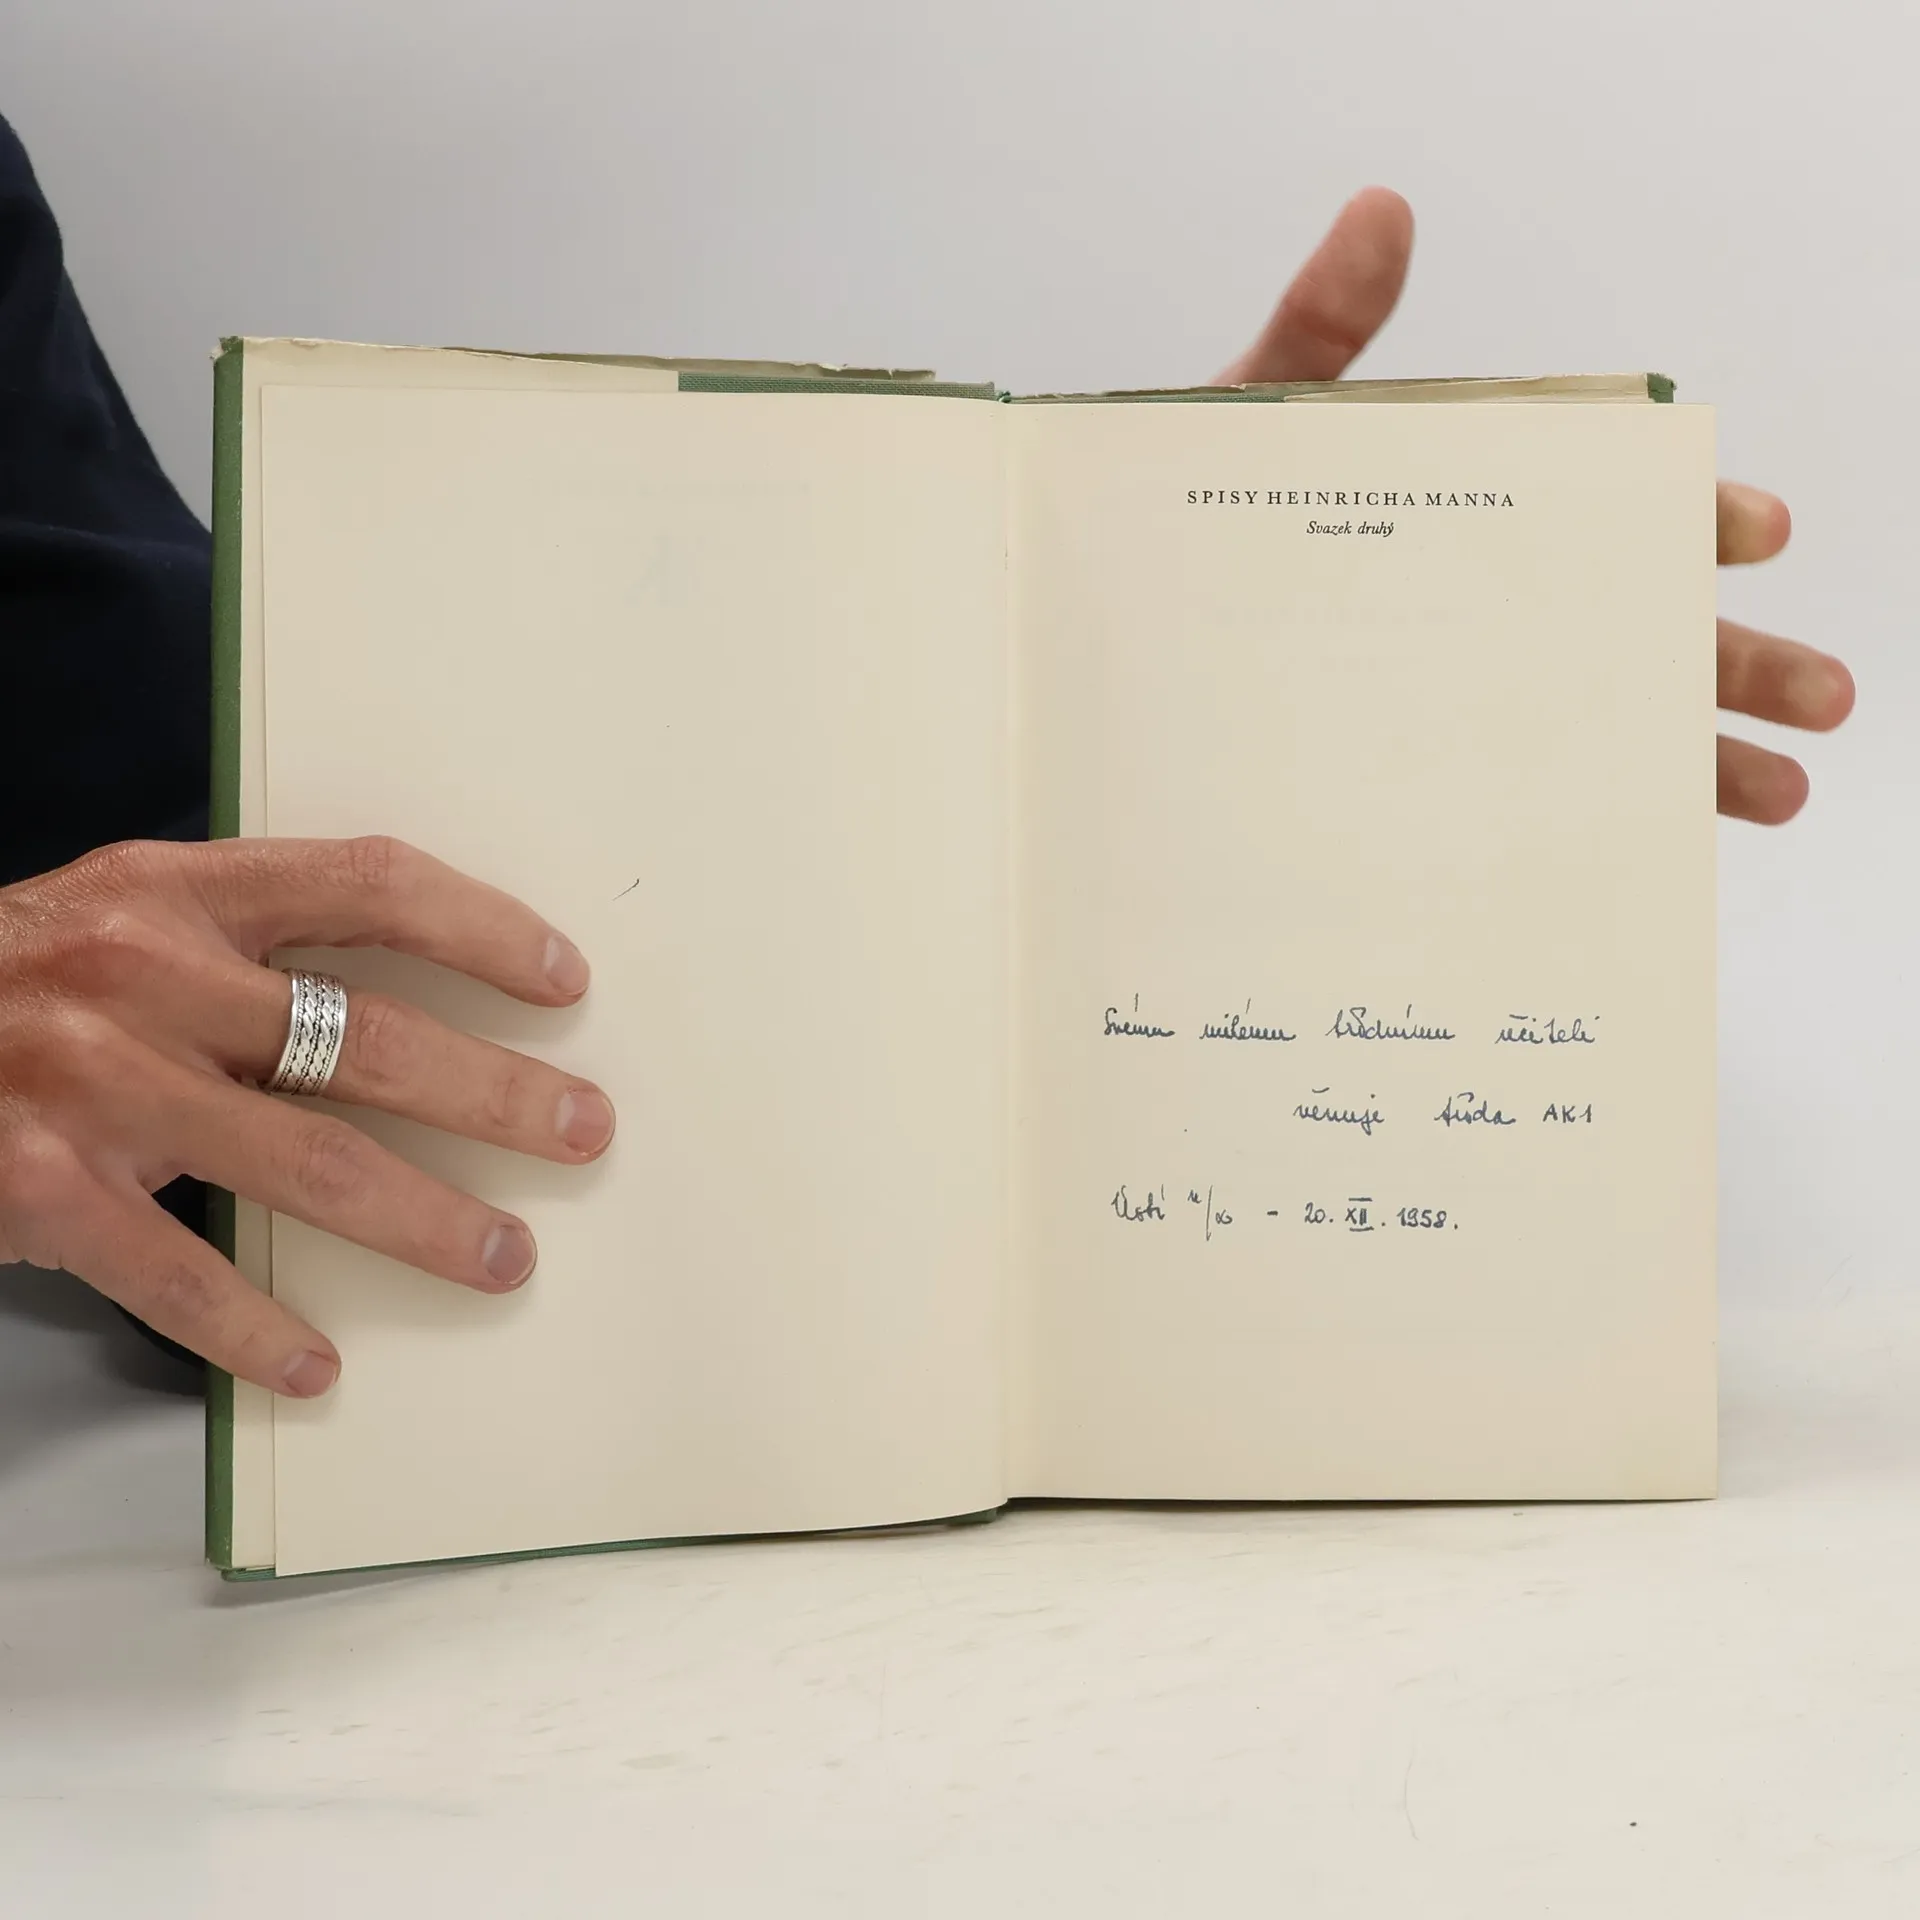 SPISY HEINRICHA MANNA
Svazek druhý
Svému milému třídnímu učiteli
věnuje třída AK1
Ústí n/O - 20. XII. 1958.